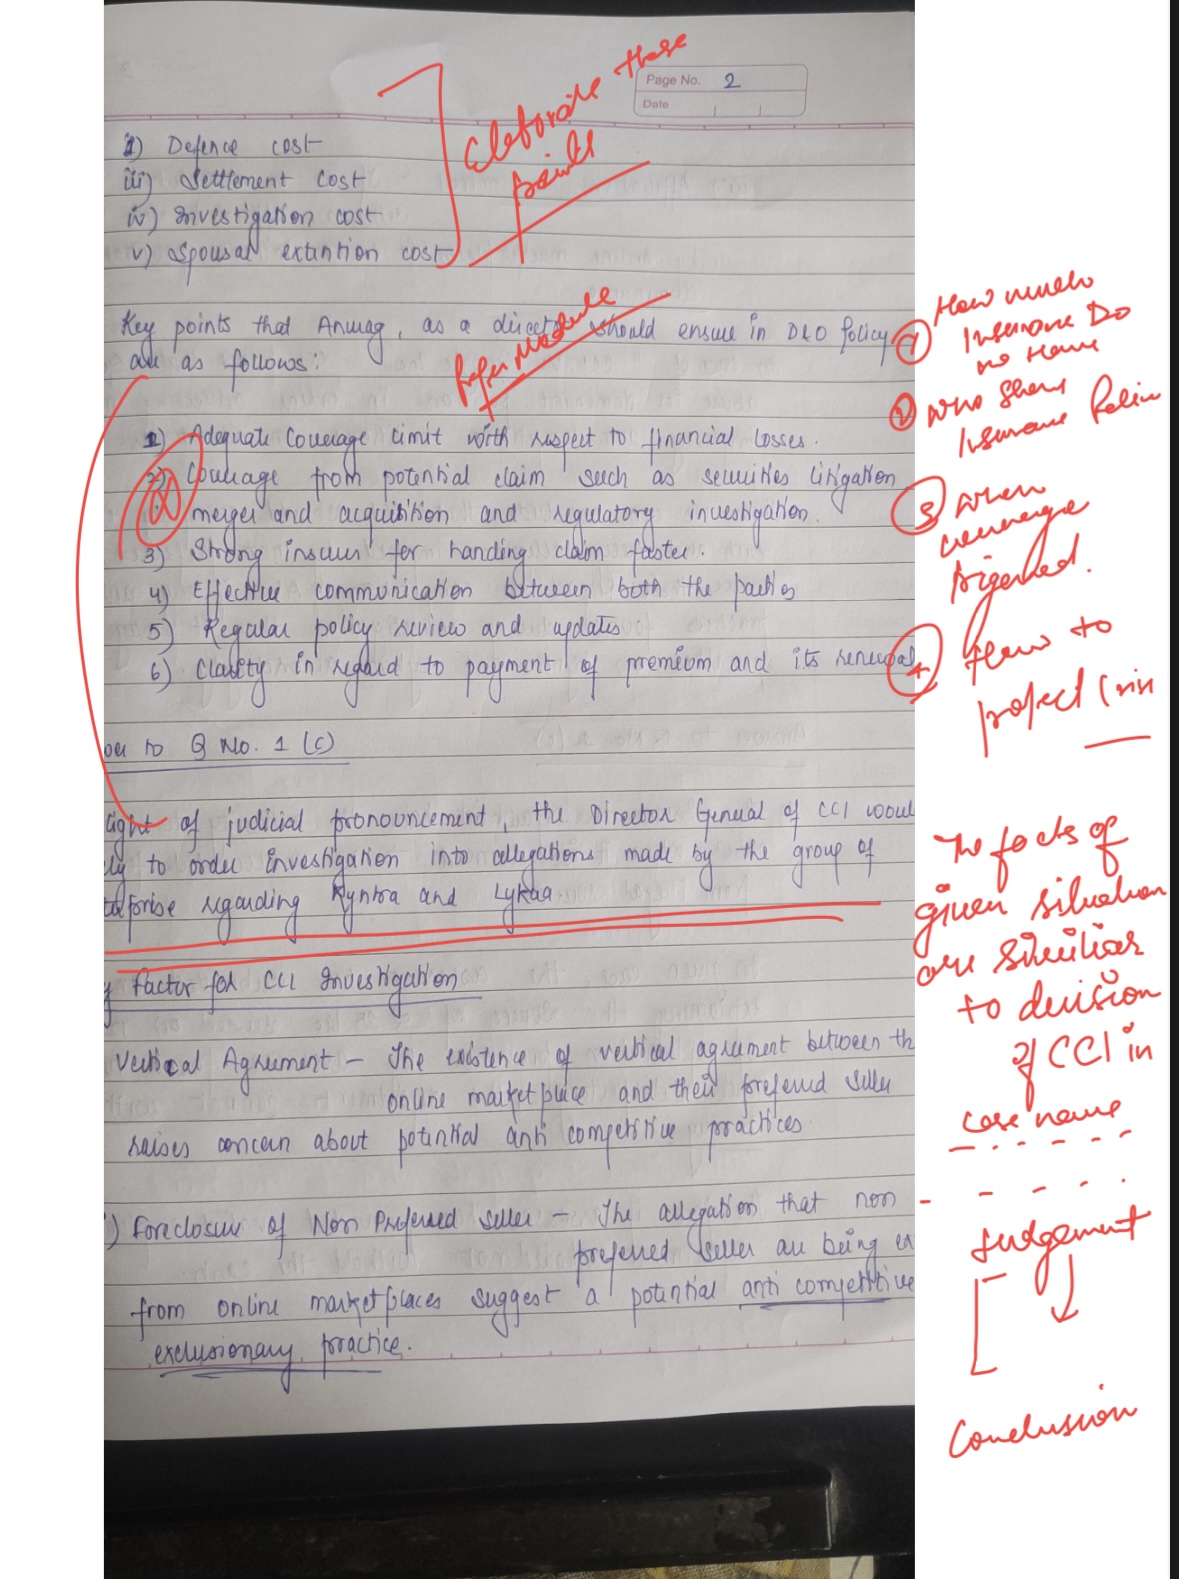 Page No. 2
Date
ii) Defence cost
iii) Settlement cost
iv) Investigation cost
v) Spousal extintion cost
Elaborate these
points
Key points that Anurag, as a director should ensure in D&O Policy
are as follows:
Refer Module
1) Adequate Coverage limit with respect to financial losses.
2) Coverage from potential claim such as securities litigation
merger and acquisition and regulatory investigation.
3) Strong insurer for handing claim faster.
4) Effective communication between both the parties
5) Regular policy review and updates
6) Clarity in regard to payment of premium and its renewal
1 How much
Insurance Do
no Have
2 Who Shous
Insurance Polici
3 When
coverage
trigerred.
4 How to
to Q No. 1 (c)
light of judicial pronouncement, the Director General of CCI woul
ly to order investigation into allegations made by the group of
regarding Kyntra and Lykaa
The facts of
given situation
are similiar
to decision
of CCI in
case name
Judgement
Conclusion
factor for CCI Investigation
Vertical Agreement - The existence of vertical agreement between th
online market place and their preferred seller
raises concern about potential anti competitive practices.
) Foreclosure of Non Preferred seller - The allegation that non
preferred seller are being ex
from online market places suggest a potential anti competitive
exclusionary practice.